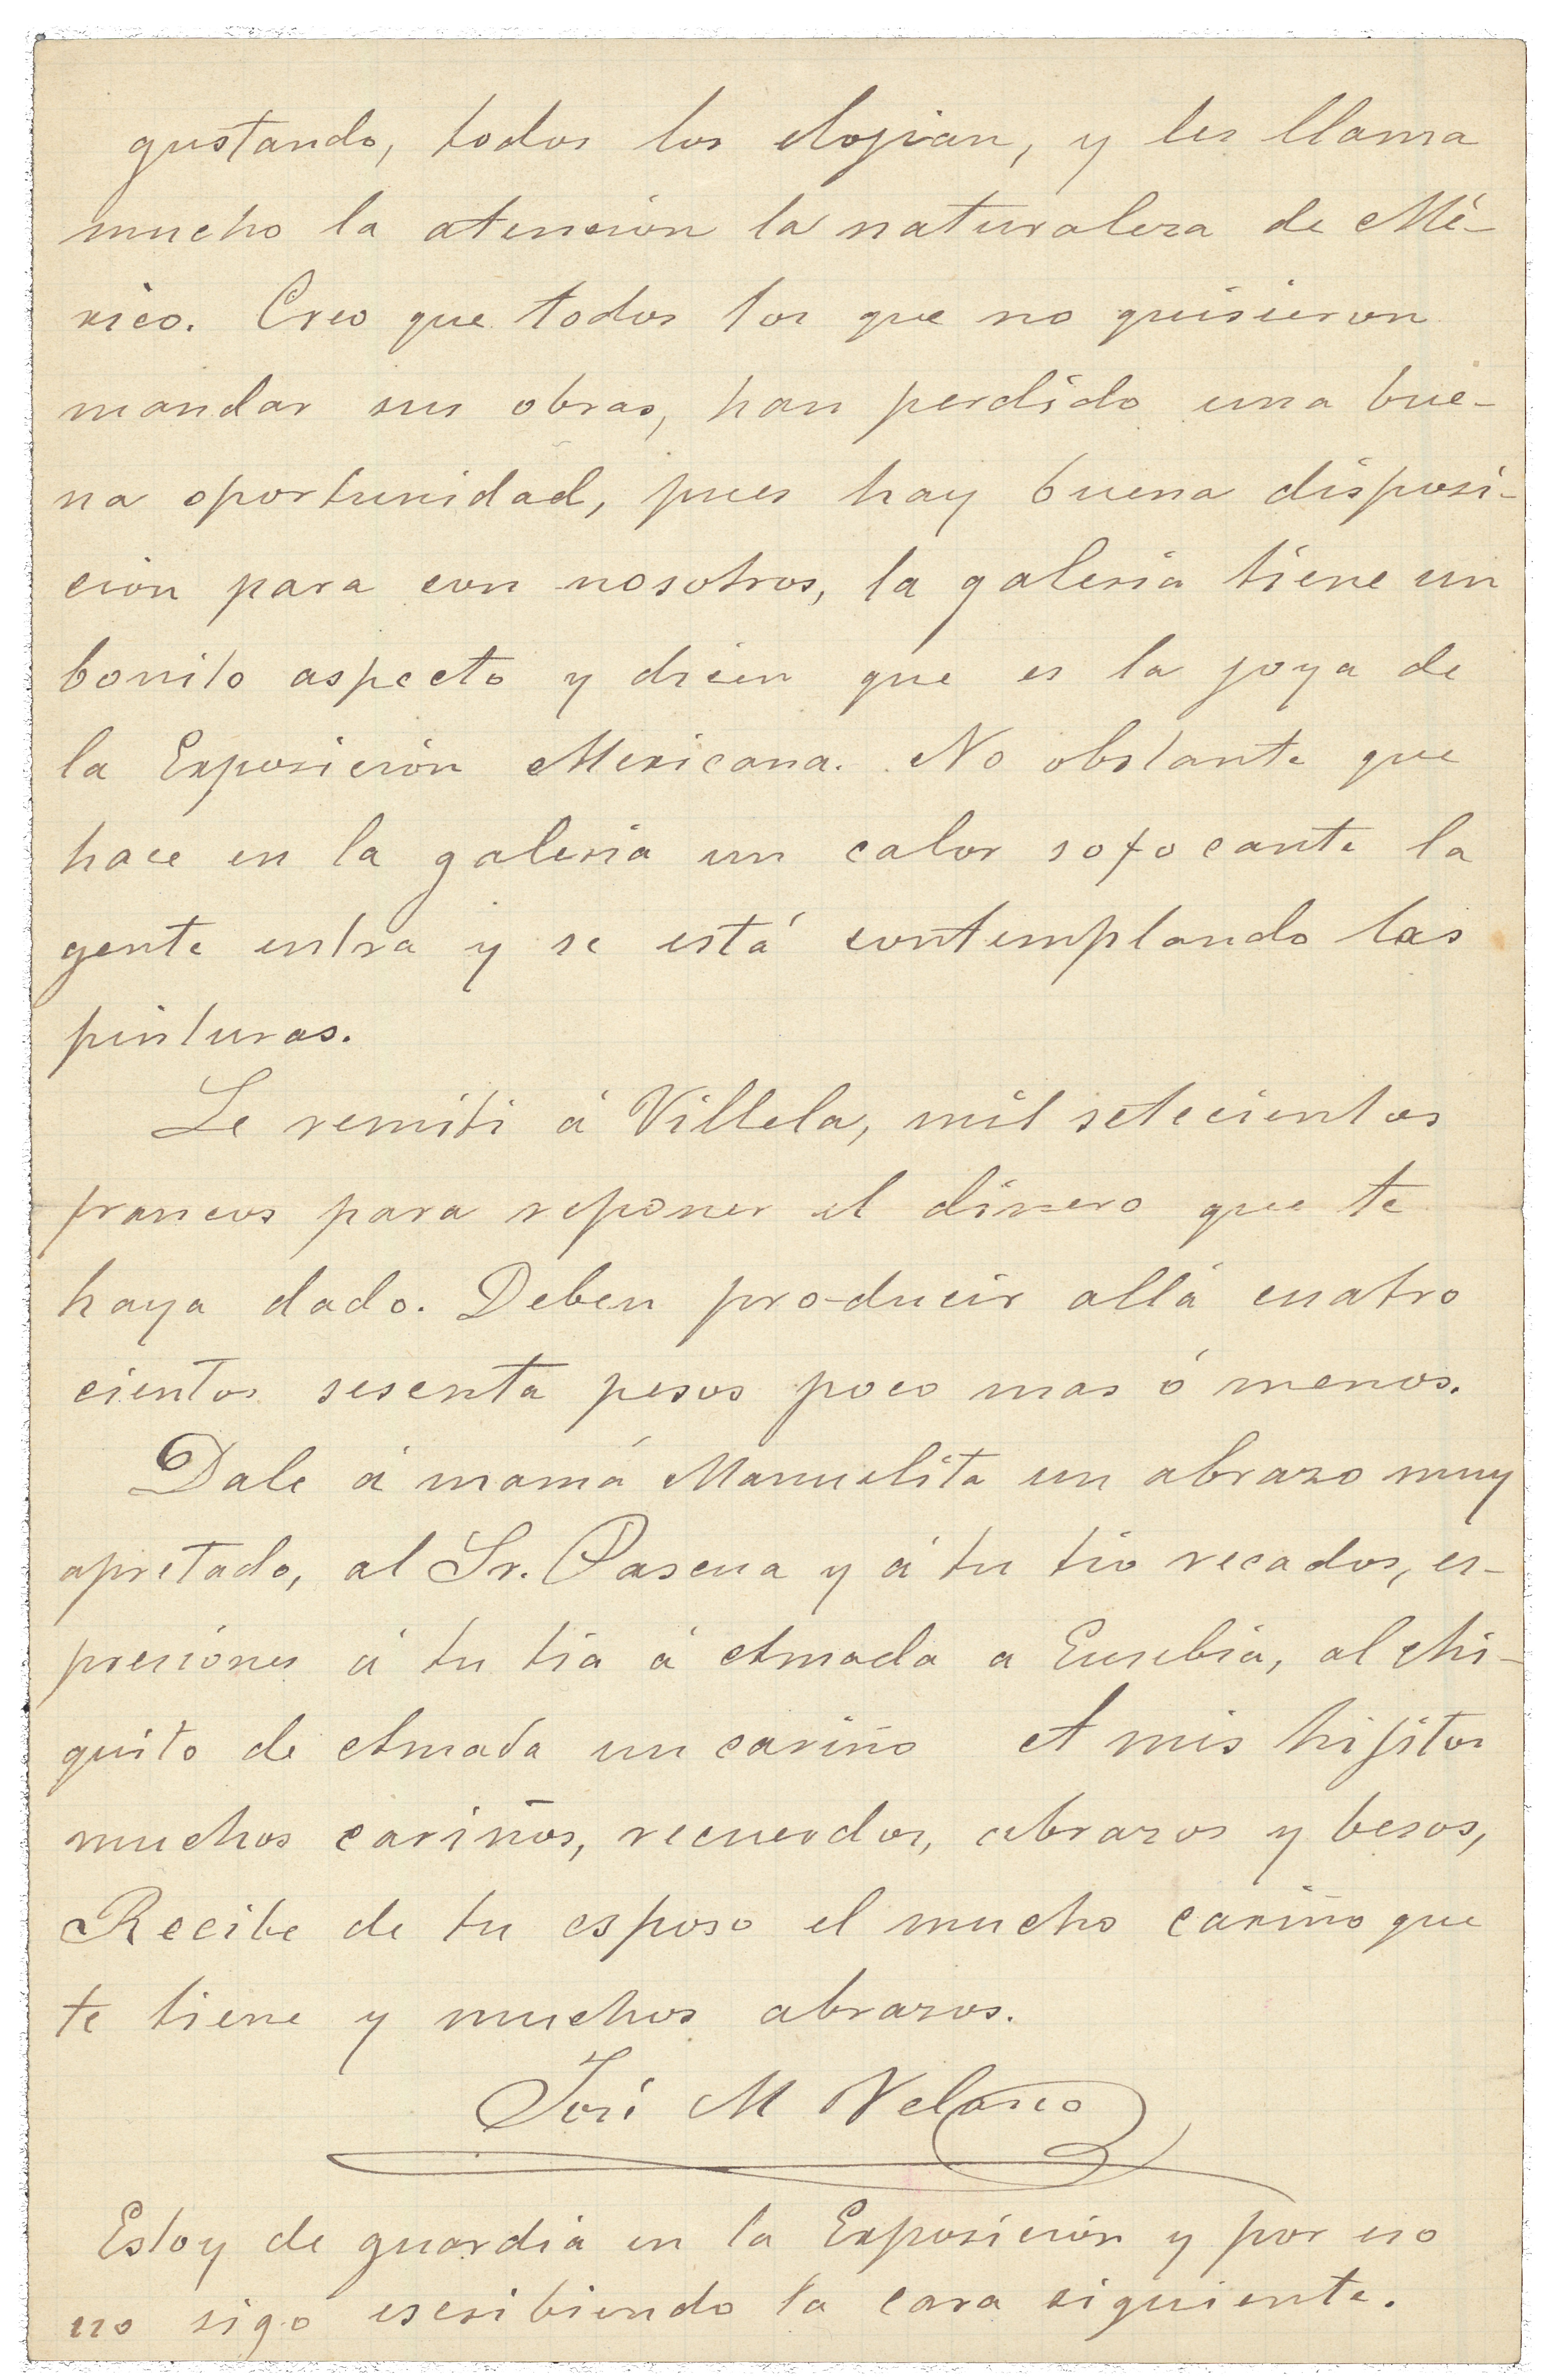 gustando, todos los elojian, y les llama
mucho la atencion la naturaleza de Mé-
xico. Creo que todos los que no quisieron
mandar sus obras, han perdido una bue-
na oportunidad, pues hay buena disposi-
cion para con nosotros, la galeria tiene un
bonito aspecto y dicen que es la joya de
la Exposición Mexicana. No obstante que
hace en la galeria un calor sofocante la
gente entra y se está contemplando las
pinturas.
Le remiti á Villela, mil setecientos
francos para reponer el dinero que te
haya dado. Deben producir allá cuatro
cientos sesenta pesos poco mas ó menos.
Dale á mamá Manuelita un abrazo muy
apretado, al Sr. Pascua y á tu tio recados, es-
presiones á tu tia á Amada a Eusebia, al chi-
quito de Amada un cariño A mis hijitos
muchos cariños, recuerdos, abrazos y besos,
Recibe de tu esposo el mucho cariño que
te tiene y muchos abrazos.
José M Velasco
Estoy de guardia en la Exposición y por eso
no sigo escribiendo la cara siguiente.